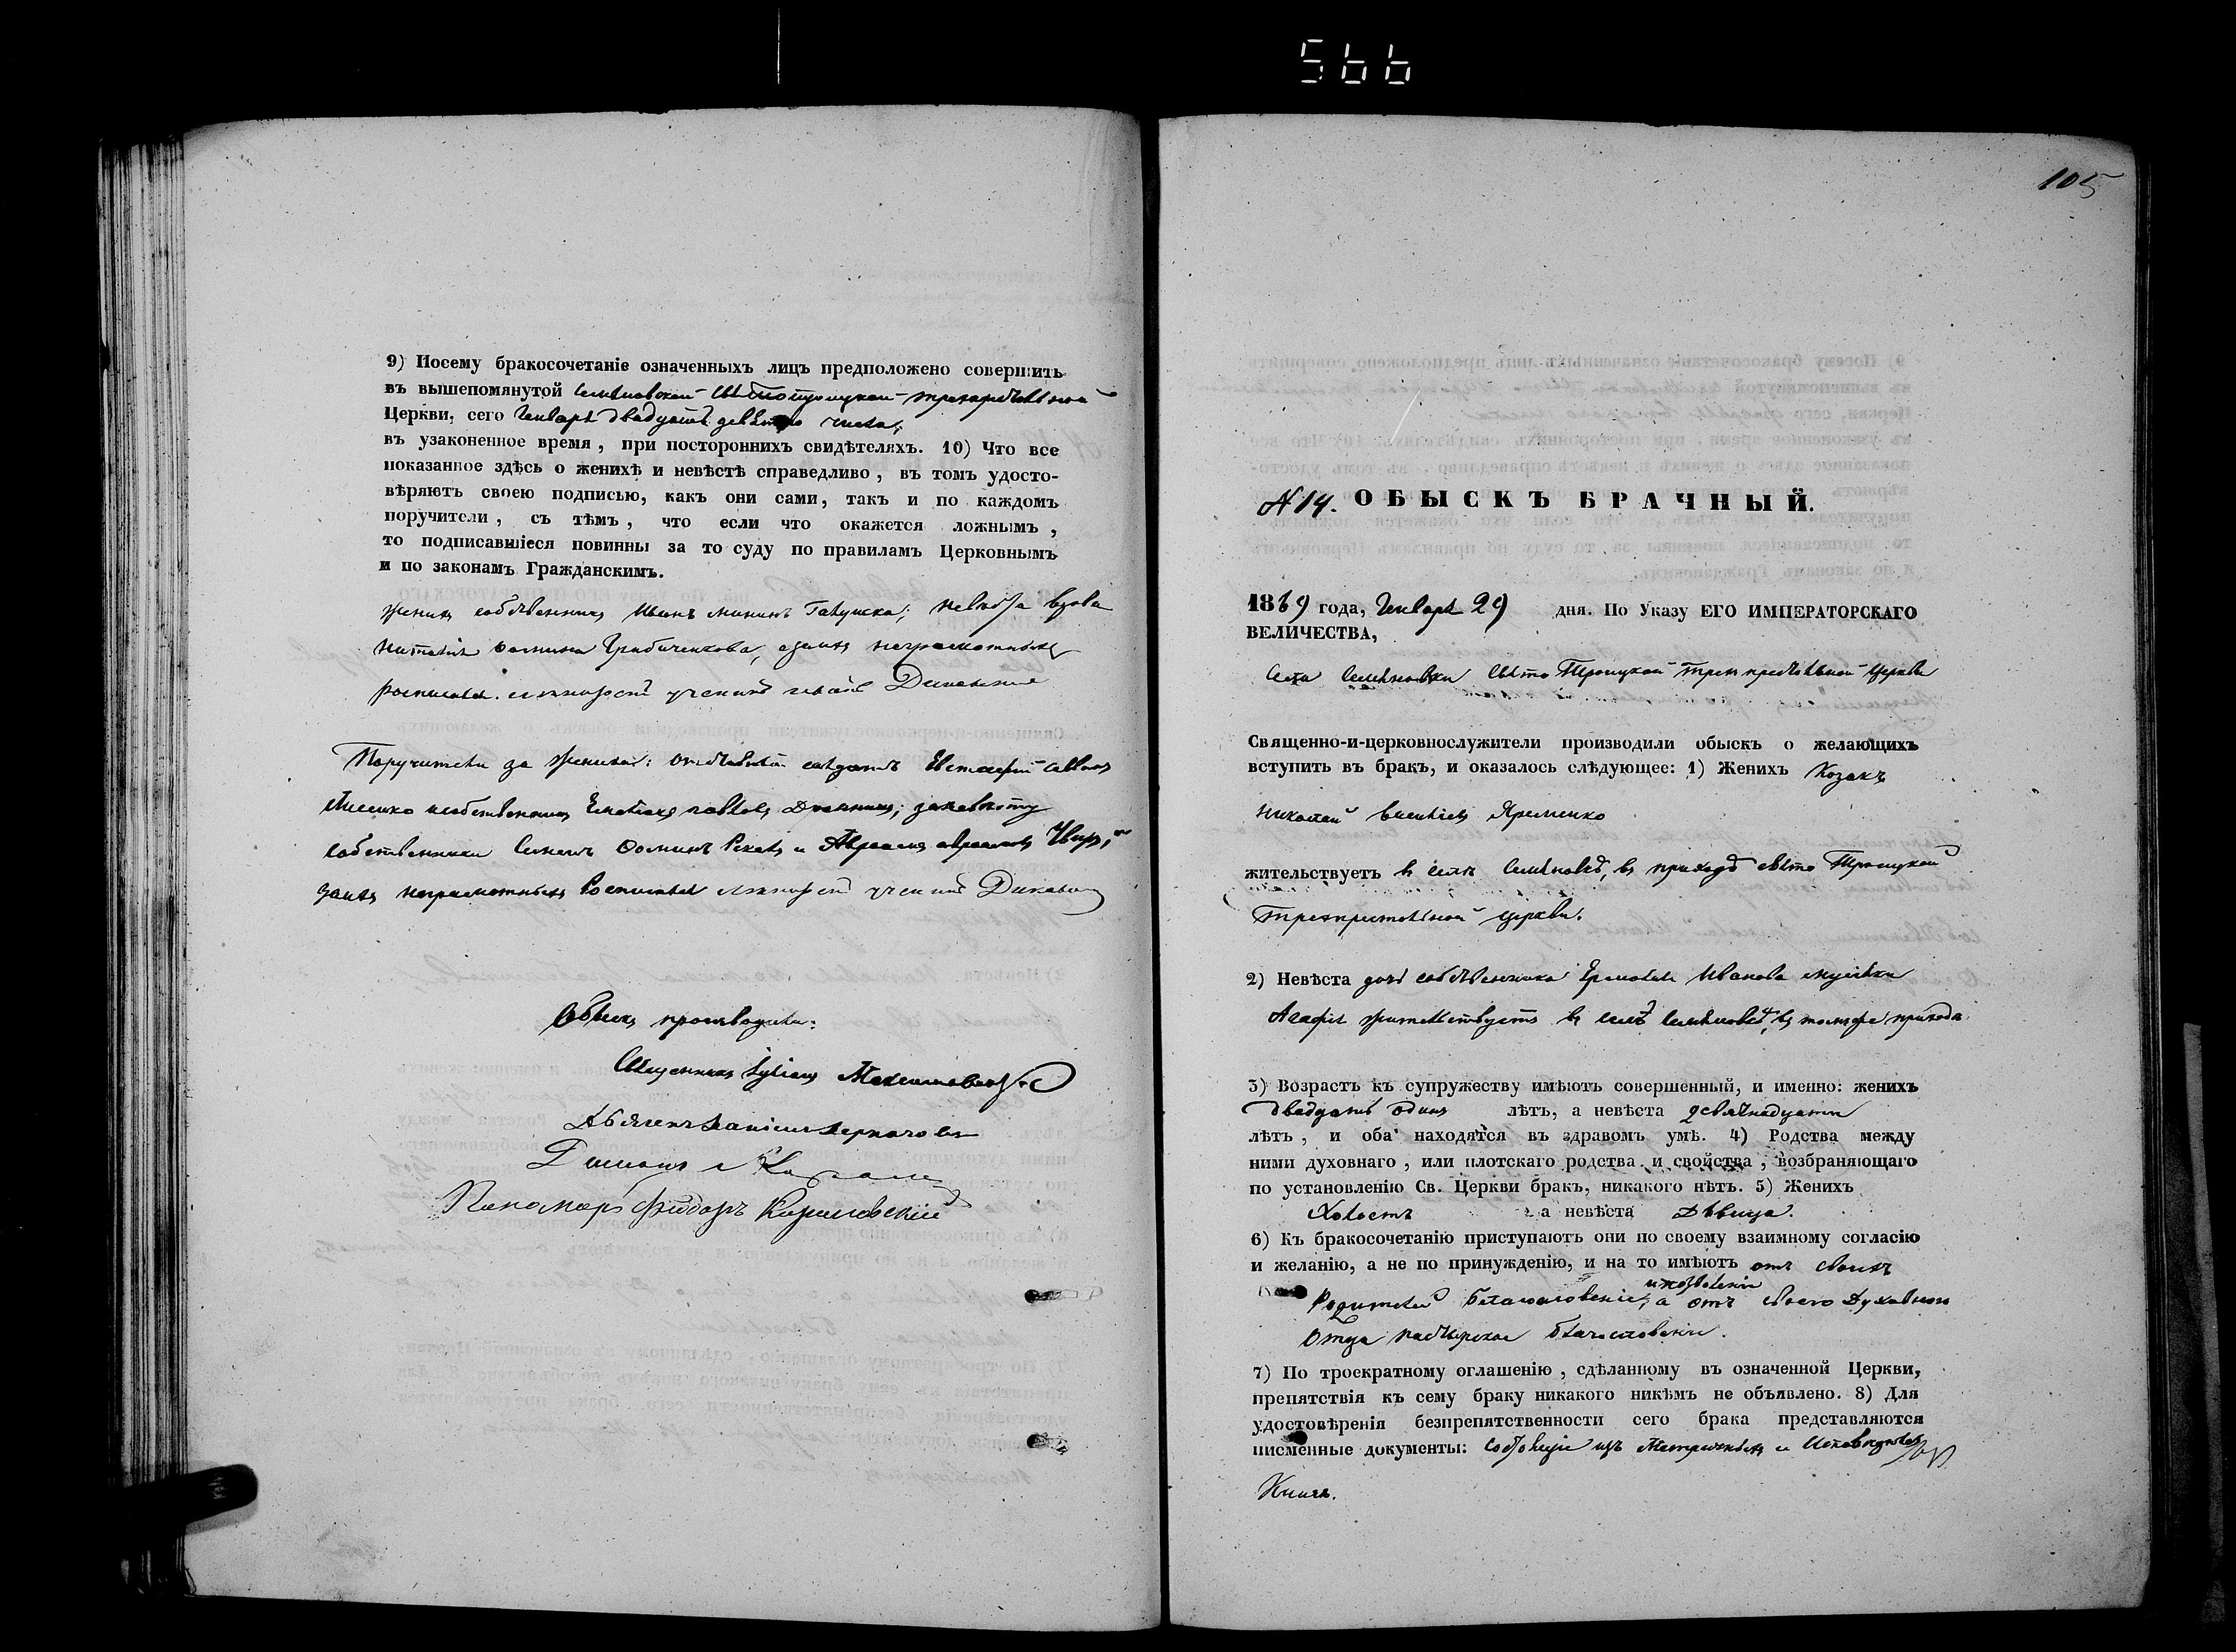 566
105
9) Посему бракосочетаніе означенныхъ лицъ предположено совершить
въ вышепомянутой Семёновской Свѣтотроицкой трехпредѣльной
Церкви, сего Генваря двадцать девятого числа,
въ узаконенное время, при постороннихъ свидѣтеляхъ. 10) Что все
показанное здѣсь о женихѣ и невѣстѣ справедливо, въ томъ удосто-
вѣряютъ своею подписью, какъ они сами, такъ и по каждомъ
поручители, съ тѣмъ, что если что окажется ложнымъ,
то подписавшіеся повинны за то суду по правиламъ Церковнымъ
и по законамъ Гражданскимъ.
женихъ собственникъ Иванъ Мининъ Галушка; невѣста вдова
Наталія Фомина Грибиченкова, а за нихъ неграмотныхъ
росписался
Поручители за жениха: отставный солдатъ Евстафий Саввинъ
собственникъ Павловъ за невѣсту
собственники Семенъ Фоминъ и Аврамъ Аврамовъ
за ихъ неграмотныхъ Росписался
Обыскъ производили:
Священникъ Максимовичъ
Дьячекъ
Пономаръ Фиодоръ
N 14. ОБЫСКЪ БРАЧНЫЙ.
1869 года, Генваря 29 дня. По Указу ЕГО ИМПЕРАТОРСКАГО
ВЕЛИЧЕСТВА,
Села Семёновки Свято Троицкой трехпредѣльной Церкви
Священно-и-церковнослужители производили обыскъ о желающихъ
вступить въ бракъ, и оказалось слѣдующее: 1) Женихъ Козакъ
Николай Васильевъ Яременко
жительствуетъ в селѣ Семёновкѣ, въ приходѣ свято Троицкой
трехпристольной церкви.
2) Невѣста дочь собственника Ермолая Иванова
Агафія жительствуетъ въ селѣ Семёновкѣ, въ томъже приходѣ.
3) Возрастъ къ супружеству имѣютъ совершенный, и именно: женихъ
двадцать одинъ лѣтъ, а невѣста девятнадцати
лѣтъ, и оба находятся въ здравомъ умѣ. 4) Родства между
ними духовнаго, или плотскаго родства и свойства, возбраняющаго
по установленію Св. Церкви бракъ, никакого нѣтъ. 5) Женихъ
Холостъ а невѣста Дѣвица.
6) Къ бракосочетанію приступаютъ они по своему взаимному согласію
и желанію, а не по принужденію, и на то имѣютъ отъ своихъ
Родителей благословеніе, а отъ своего Духовного
Отца пастырское благословеніе.
7) По троекратному оглашенію, сдѣланному въ означенной Церкви,
препятствія къ сему браку никакого никѣмъ не объявлено. 8) Для
удостовѣренія безпрепятственности сего брака представляются
писменные документы: изъ Метрическихъ и Исповѣдныхъ
Книгъ.